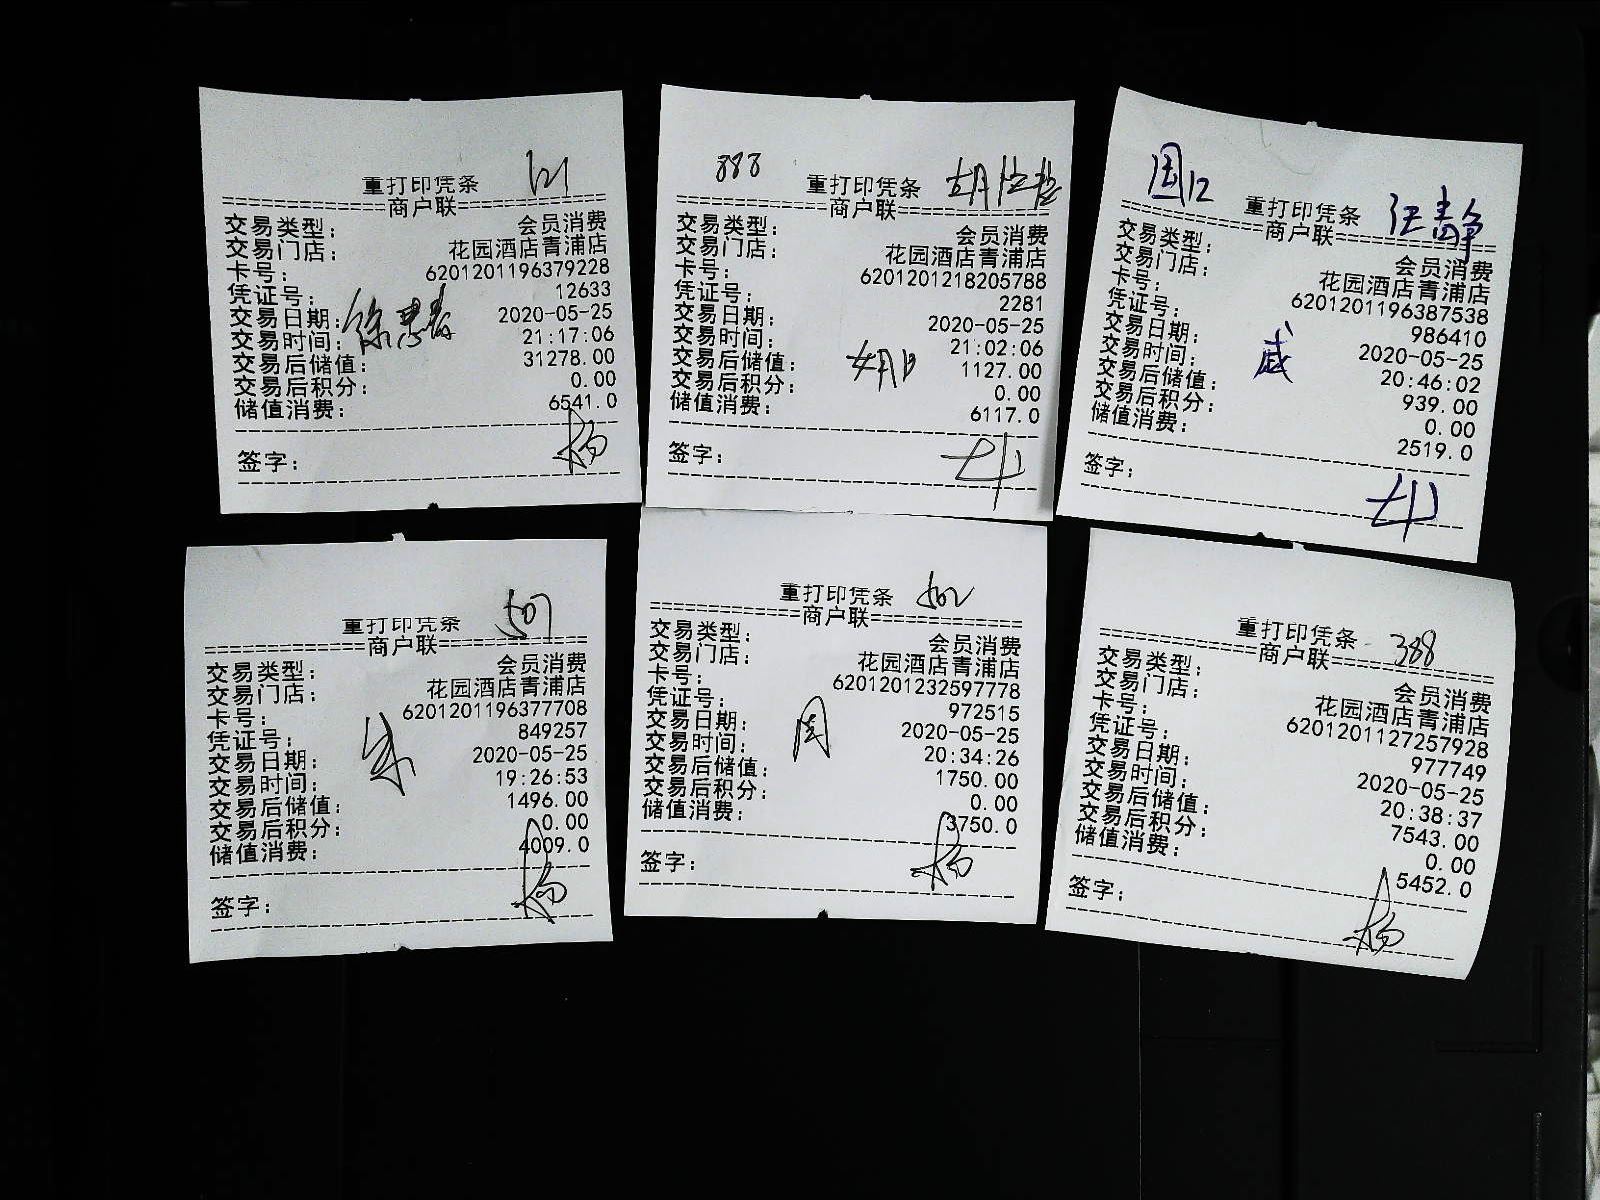 121
重打印凭条
商户联
交易类型: 会员消费
交易门店: 花园酒店青浦店
卡号: 6201201196379228
凭证号: 12633
交易日期: 2020-05-25
交易时间: 21:17:06
交易后储值: 31278.00
交易后积分: 0.00
储值消费: 6541.0
签字: 杨
888
重打印凭条 胡
商户联
交易类型: 会员消费
交易门店: 花园酒店青浦店
卡号: 6201201218205788
凭证号: 2281
交易日期: 2020-05-25
交易时间: 21:02:06
交易后储值: 1127.00
交易后积分: 0.00
储值消费: 6117.0
签字:
重打印凭条 汪静
商户联
交易类型: 会员消费
交易门店: 花园酒店青浦店
卡号: 6201201196387538
凭证号: 986410
交易日期: 2020-05-25
交易时间: 20:46:02
交易后储值: 939.00
交易后积分: 0.00
储值消费: 2519.0
签字:
重打印凭条 507
商户联
交易类型: 会员消费
交易门店: 花园酒店青浦店
卡号: 6201201196377708
凭证号: 849257
交易日期: 2020-05-25
交易时间: 19:26:53
交易后储值: 1496.00
交易后积分: 0.00
储值消费: 4009.0
签字: 杨
重打印凭条 502
商户联
交易类型: 会员消费
交易门店: 花园酒店青浦店
卡号: 6201201232597778
凭证号: 972515
交易日期: 2020-05-25 周
交易时间: 20:34:26
交易后储值: 1750.00
交易后积分: 0.00
储值消费: 3750.0
签字: 杨
重打印凭条 388
商户联
交易类型: 会员消费
交易门店: 花园酒店青浦店
卡号: 6201201127257928
凭证号: 977749
交易日期: 2020-05-25
交易时间: 20:38:37
交易后储值: 7543.00
交易后积分: 0.00
储值消费: 5452.0
签字: 杨